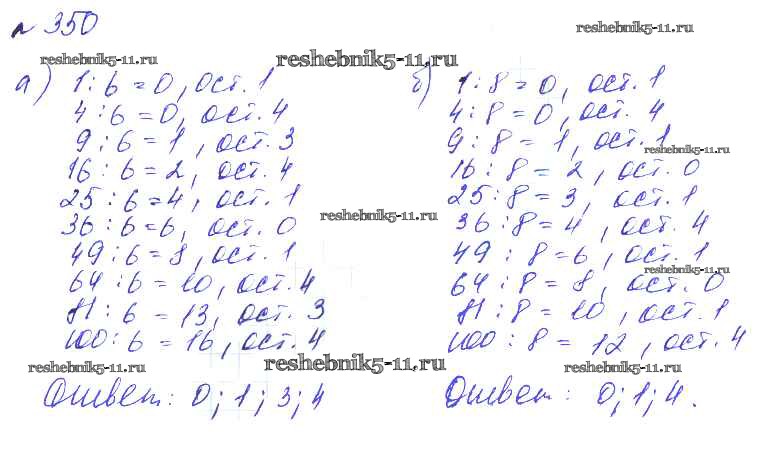 № 350
reshebnik5-11.ru
reshebnik5-11.ru
reshebnik5-11.ru
а) 1 : 6 = 0, ост. 1
4 : 6 = 0, ост. 4
9 : 6 = 1, ост. 3
16 : 6 = 2, ост. 4
25 : 6 = 4, ост. 1
36 : 6 = 6, ост. 0
49 : 6 = 8, ост. 1
64 : 6 = 10, ост. 4
81 : 6 = 13, ост. 3
100 : 6 = 16, ост. 4
reshebnik5-11.ru
Ответ: 0; 1; 3; 4
б) 1 : 8 = 0, ост. 1
4 : 8 = 0, ост. 4
9 : 8 = 1, ост. 1
reshebnik5-11.ru
16 : 8 = 2, ост. 0
25 : 8 = 3, ост. 1
reshebnik5-11.ru
36 : 8 = 4, ост. 4
49 : 8 = 6, ост. 1
reshebnik5-11.ru
64 : 8 = 8, ост. 0
81 : 8 = 10, ост. 1
100 : 8 = 12, ост. 4
reshebnik5-11.ru
reshebnik5-11.ru
Ответ: 0; 1; 4.